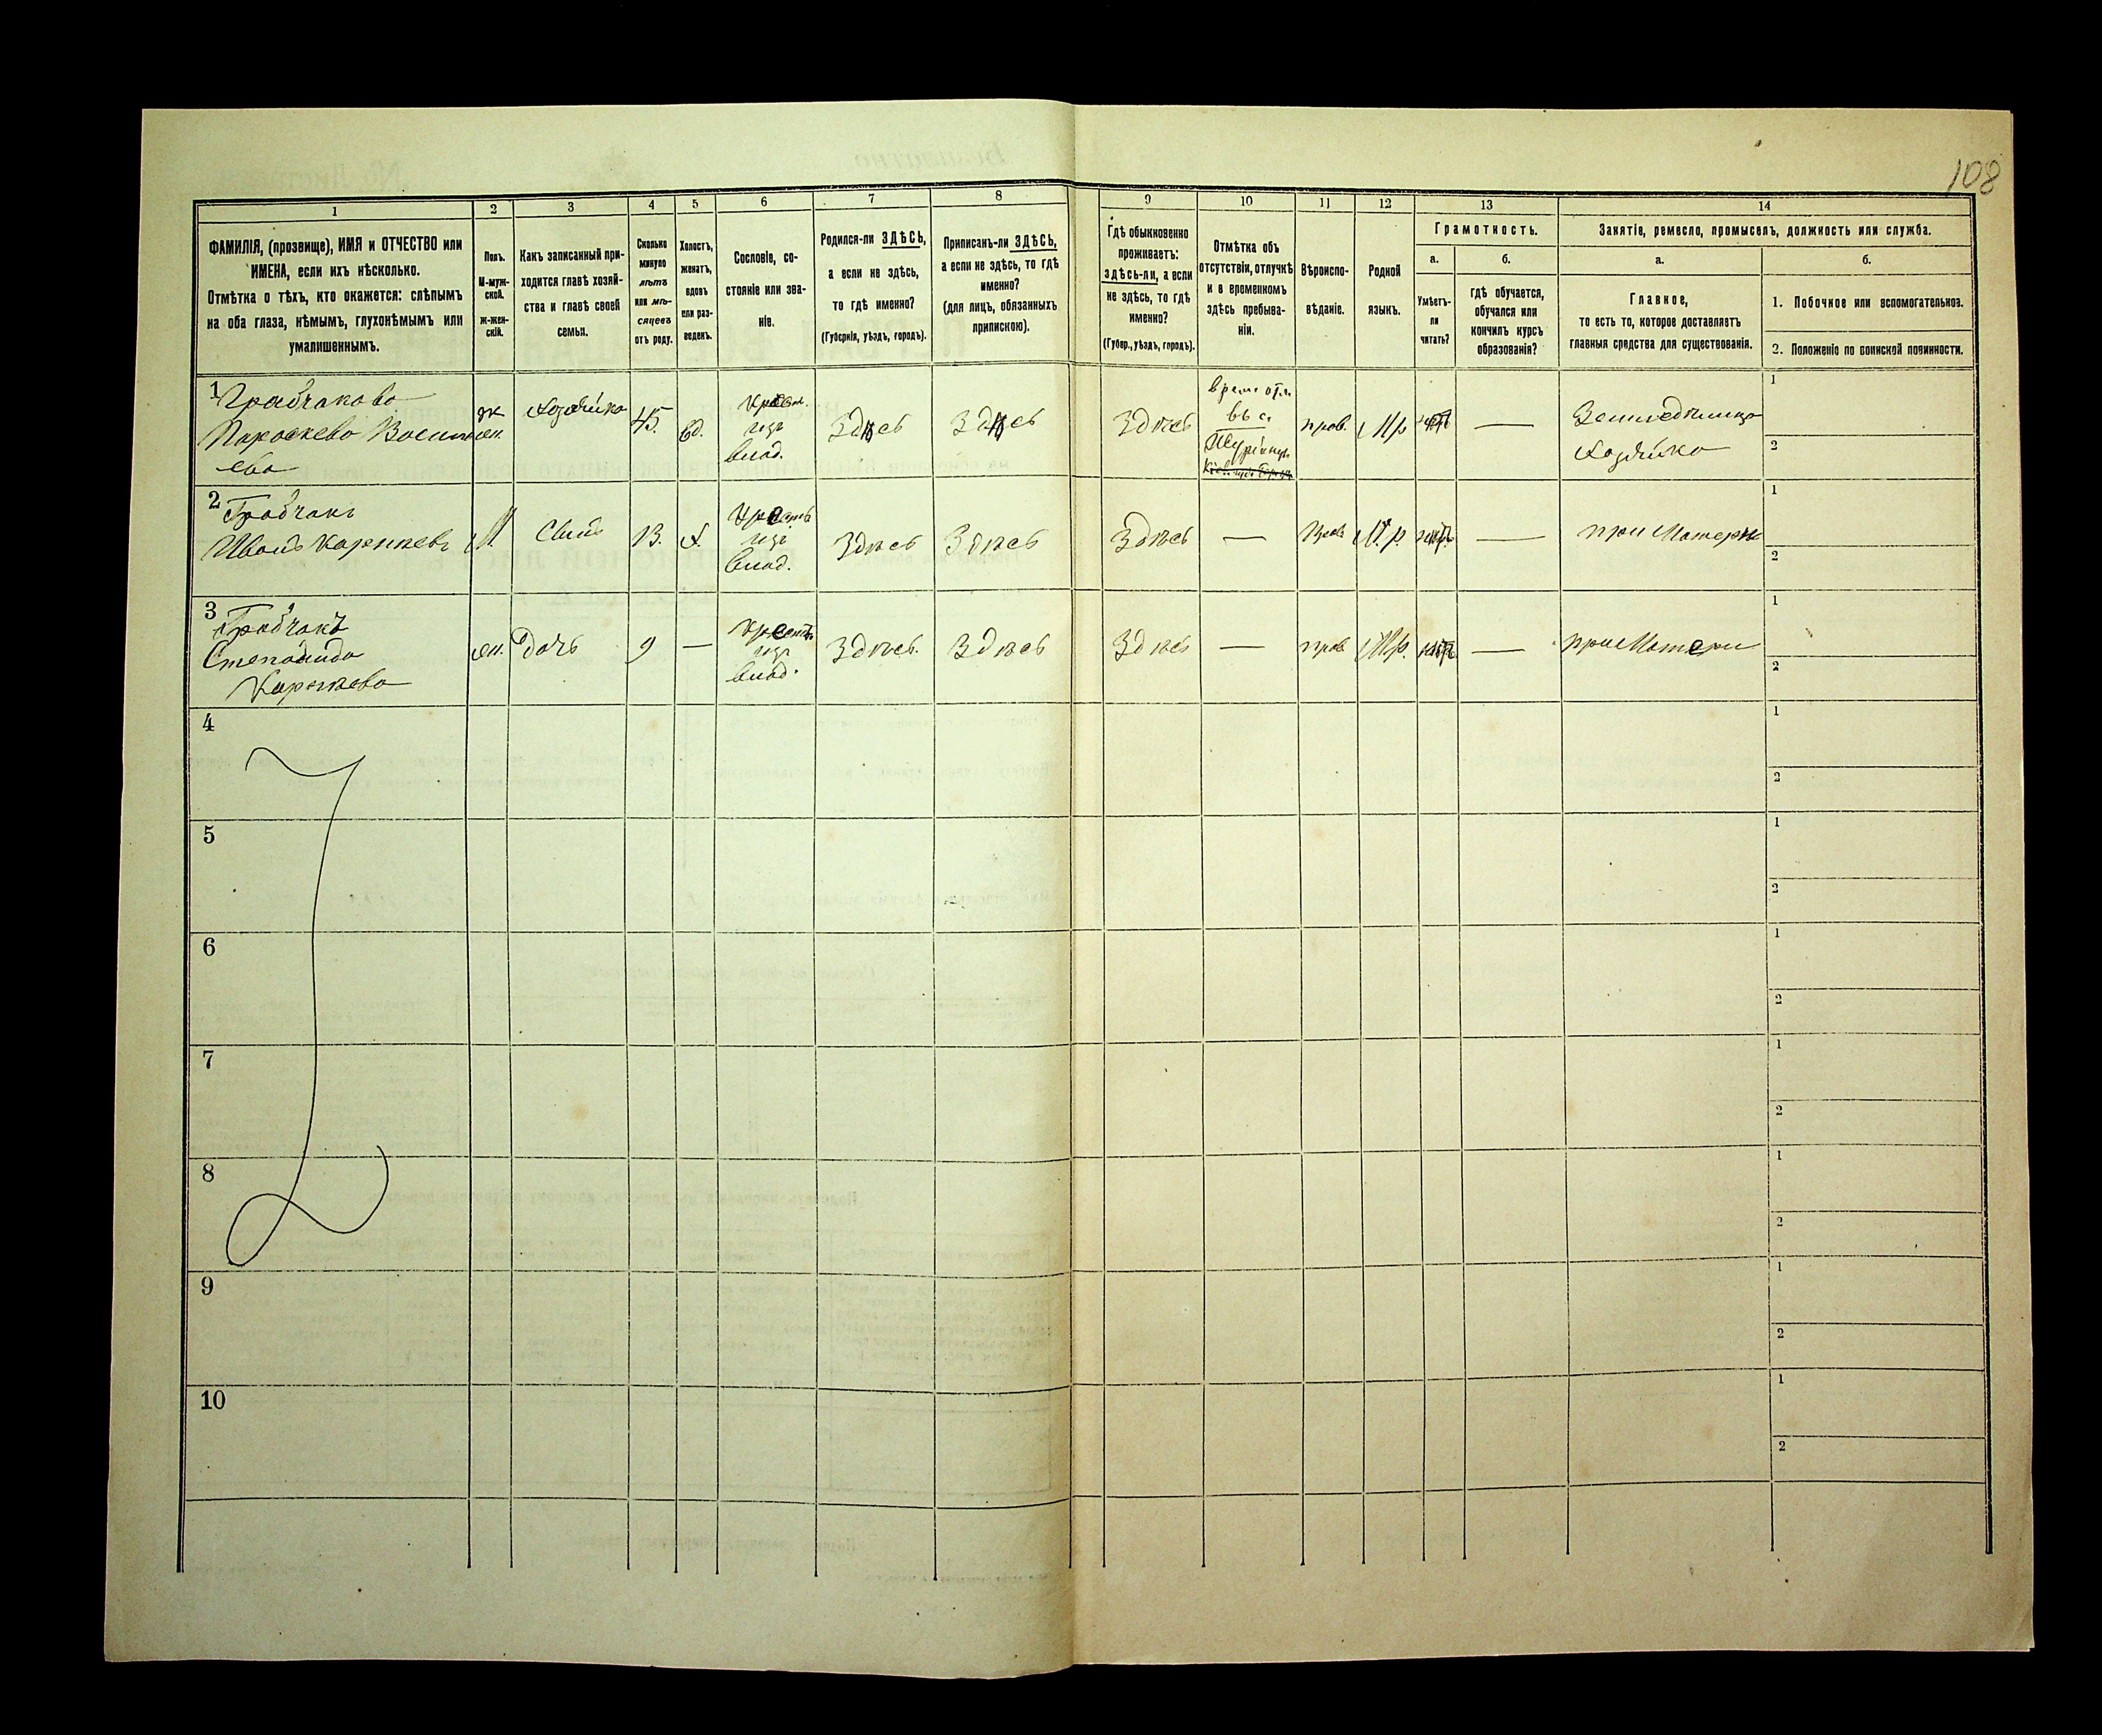 108
1
2
3
4
5
6
7
8
9
10
11
12
13
14
ФАМИЛІЯ, (прозвище), ИМЯ и ОТЧЕСТВО или
ИМЕНА, если ихъ нѣсколько.
Отмѣтка о тѣхъ, кто окажется: слѣпымъ
на оба глаза, нѣмымъ, глухонѣмымъ или
умалишеннымъ.
Полъ.
М-муж-
ской.
ж-жен-
скій.
Какъ записанный при-
ходится главѣ хозяй-
ства и главѣ своей
семьи.
Сколько
минуло
лѣтъ
или мѣ-
сяцевъ
отъ роду.
Холостъ,
женатъ,
вдовъ
или раз-
веденъ.
Сословіе, со-
стояніе или зва-
ніе.
Родился-ли ЗДѢСЬ,
а если не здѣсь,
то гдѣ именно?
(Губернія, уѣздъ, городъ).
Приписанъ-ли ЗДѢСЬ,
а если не здѣсь, то гдѣ
именно?
(для лицъ, обязанныхъ
припискою).
Гдѣ обыкновенно
проживаетъ:
здѣсь-ли, а если
не здѣсь, то гдѣ
именно?
(Губер., уѣздъ, городъ).
Отмѣтка объ
отсутствіи, отлучкѣ
и о временномъ
здѣсь пребыва-
ніи.
Вѣроиспо-
вѣданіе.
Родной
языкъ.
Грамотность.
а.
Умѣетъ-
ли
читать?
б.
гдѣ обучается,
обучался или
кончилъ курсъ
образованія?
Занятіе, ремесло, промыселъ, должность или служба.
а.
Главное,
то есть то, которое доставляетъ
главныя средства для существованія.
б.
1. Побочное или вспомогательное.
2. Положеніе по воинской повинности.
1
Грабчакова
Параскева Васили
ева
ж
хозяйка
45.
вд.
Крест.
изъ
влад.
Здѣсь
Здѣсь
Здѣсь
врем. отл.
въ с.
прав.
М.р.
нѣтъ
—
Земледѣлица
хозяйка
1
2
2
Грабчакъ
Иванъ Карпиевъ
М.
Сынъ
13.
х.
Крестьян.
изъ
влад.
Здѣсь
Здѣсь
Здѣсь
—
прав.
М.р.
—
при Матери
1
2
3
Грабчакъ
Степанида
Карпиева
жен.
дочь
9
—
Крестьян.
изъ
влад.
Здѣсь.
Здѣсь
Здѣсь
—
прав
М.р.
—
при Матери
1
2
4
1
2
5
1
2
6
1
2
7
1
2
8
1
2
9
1
2
10
1
2